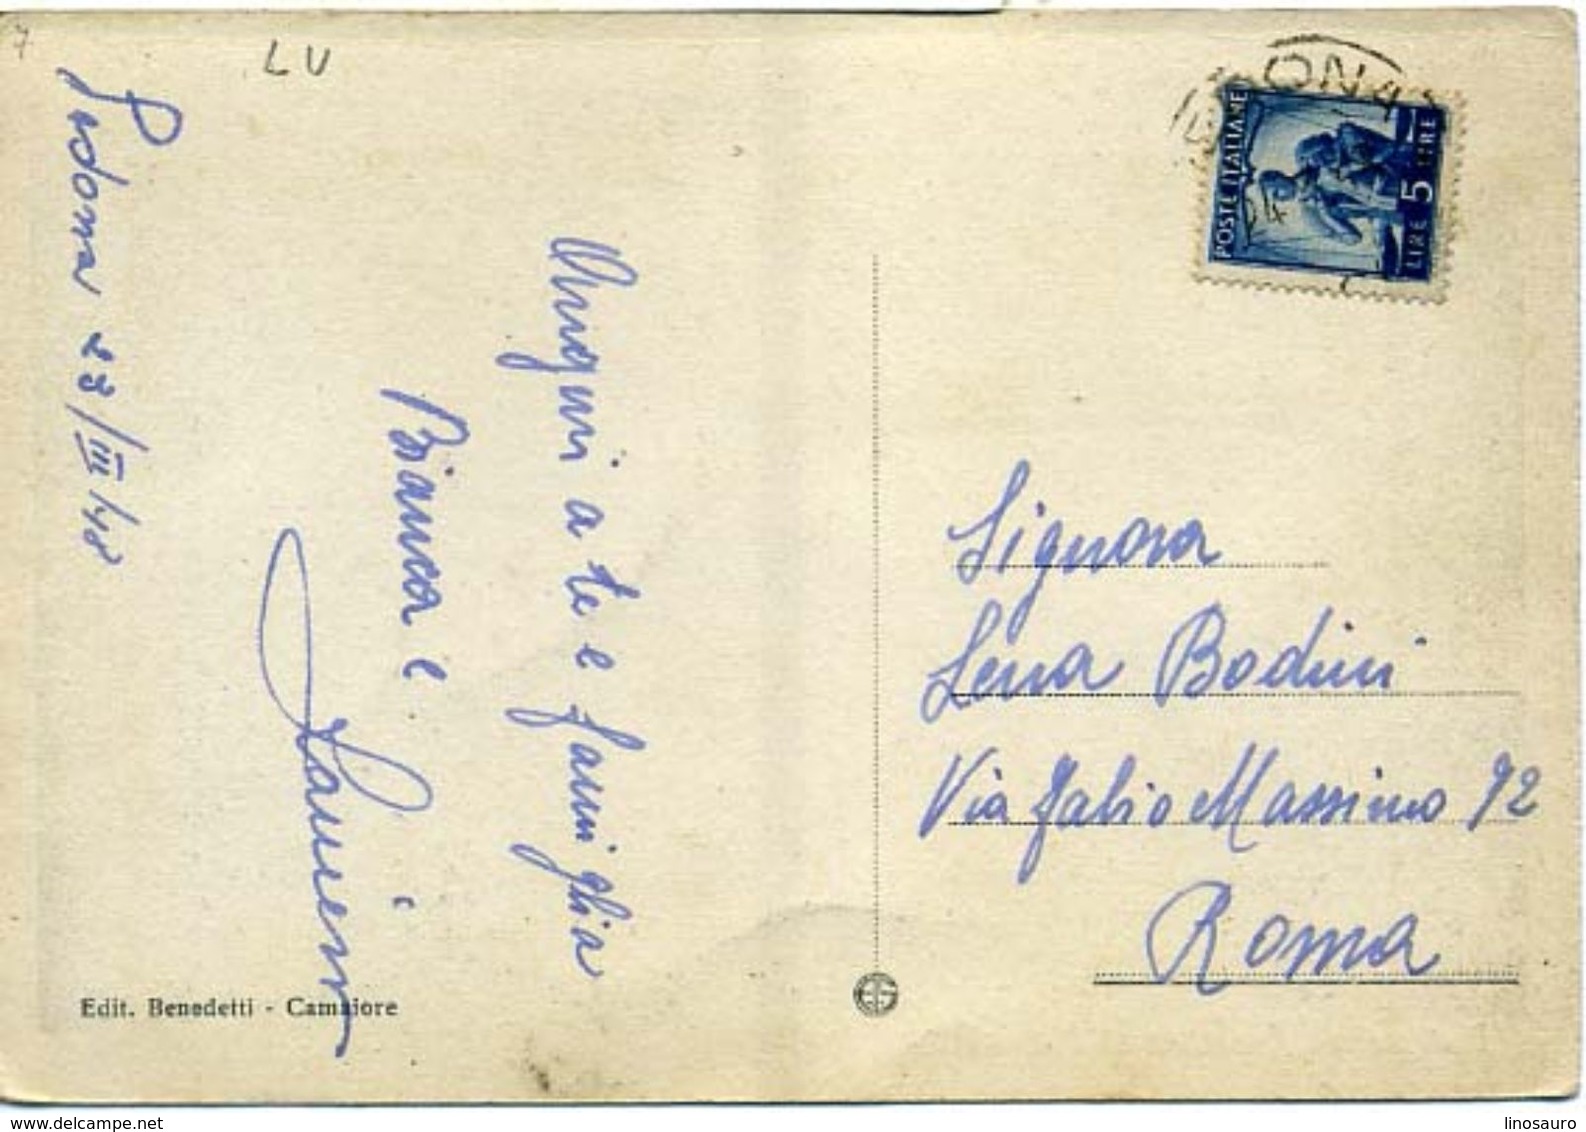 LU
Pedona 23/III/48
Auguri a te e famiglia
Bianca e
POSTE ITALIANE
LIRE 5 LIRE
Signora
Lena Bodini
Via Fabio Massimo 72
Roma
Edit. Benedetti - Camaiore
www.delcampe.net
linosauro